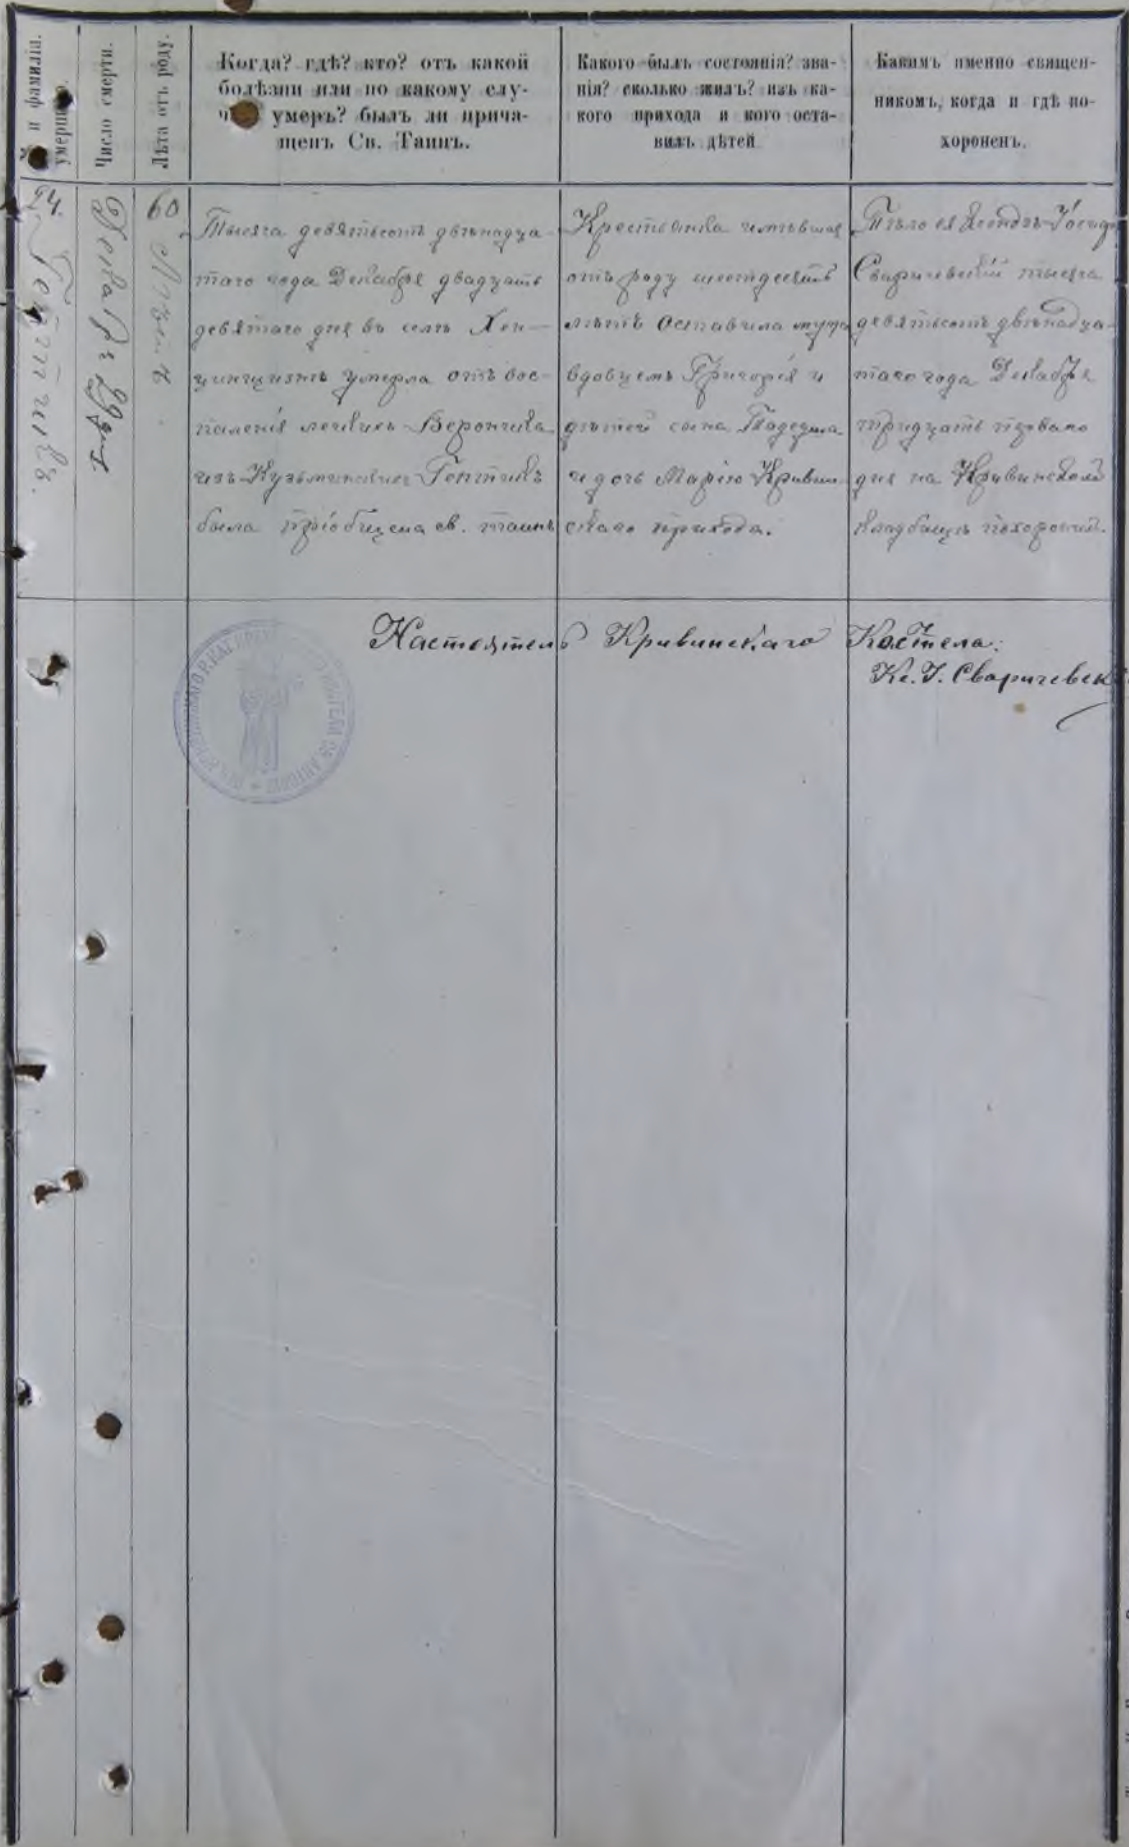 и фамилія.
умерш
Число смерти.
Лѣта отъ роду.
Когда? гдѣ? кто? отъ какой
болѣзни или по какому слу-
умеръ? былъ ли прича-
щенъ Св. Таинъ.
Какого былъ состоянія? зва-
нія? сколько жилъ? изъ ка-
кого прихода и кого оста-
вилъ дѣтей
Какимъ именно священ-
никомъ, когда и гдѣ по-
хороненъ.
24.
Декабря 29 дня
60
Лѣтъ
Тысяча девятьсотъ двѣнадца-
таго года Декабря двадцать
девятаго дня въ селѣ Хен-
умерла отъ вос-
паленія легкихъ Верониka
изъ Кузьминскихъ
была пріобщена св. таинъ
Крестьянка имѣвшая
отъ роду шестьдесятъ
лѣтъ Оставила мужа
вдовцемъ Григорія и
дѣтей сына Тадеуша
и дочь Марію Кривин-
скаго прихода.
Тѣло ея Ксендзъ
Сваричевскій тысяча
девятьсотъ двѣнадца-
таго года Декабря
тридцать перваго
дня на Кривинскомъ
кладбищѣ похоронилъ.
Настоятель Кривинскаго Костела:
Кс. І. Сваричевск